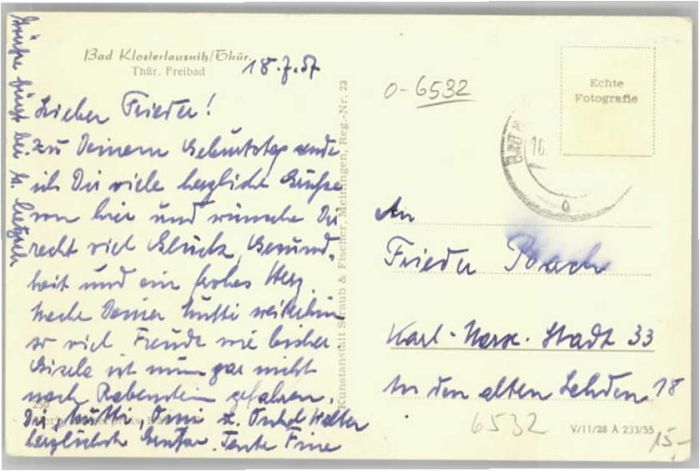 Bad Klosterlausnitz/Thür.
Thür. Freibad
18.7.57
Lieber Frieder!
Zu Deinem Geburtstag sende
ich Dir viele herzliche Grüße
von hier und wünsche Dir
recht viel Glück, Gesund-
heit und ein frohes Herz.
Mache Deiner Mutti weiterhin
so viel Freude wie bisher.
Gisela ist nun gar nicht
nach Rabenstein gefahren.
Dir, Mutti, Omi u. Onkel Walter
herzlichste Grüße. Tante Fine
Grüße
Kunstanstalt Straub & Fischer, Meiningen, Reg.-Nr. 23
0-6532
Echte
Fotografie
An
Frieder
Karl-Marx-Stadt 33
In den alten Lehden 18
6532
V/11/28 A 233/55
15,-